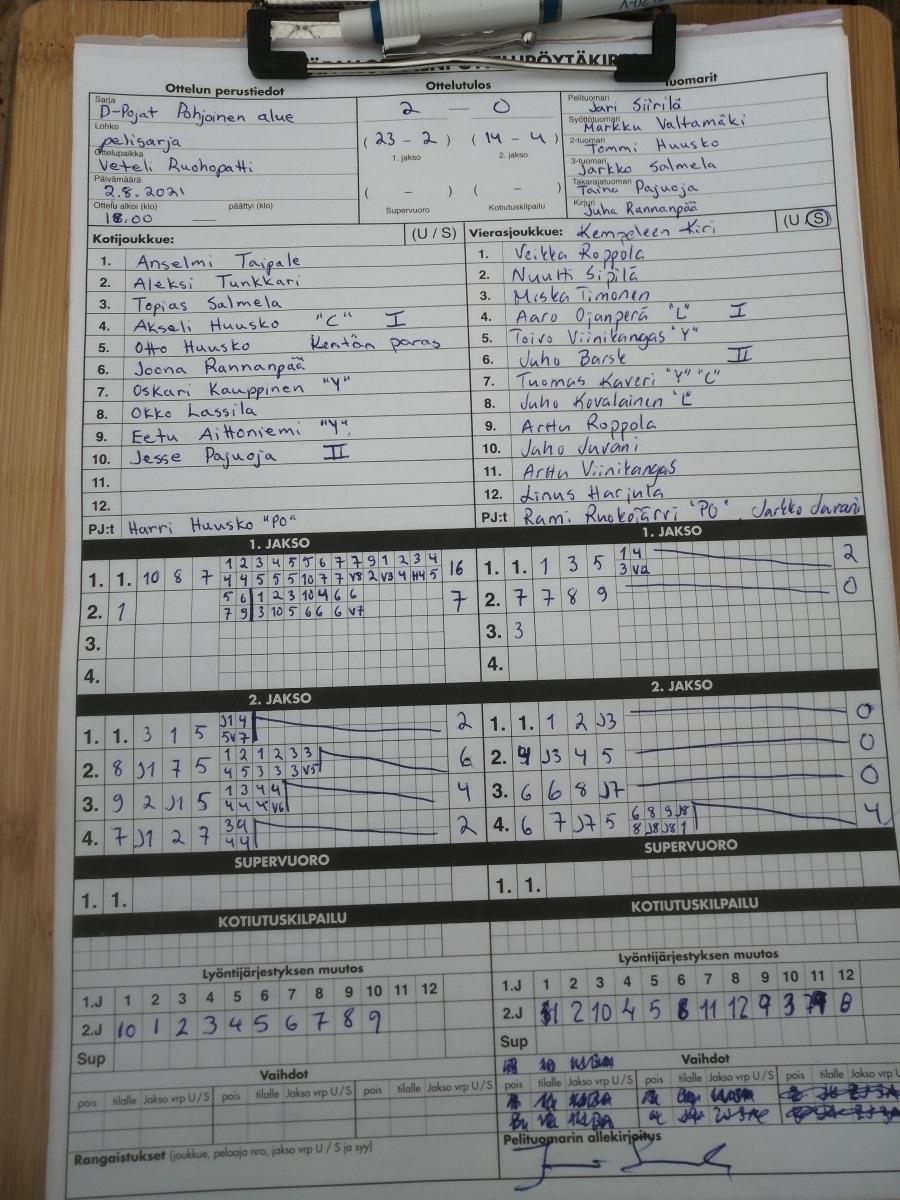 Ottelun perustiedot
Ottelutulos
Tuomarit
Sarja
D-Pojat Pohjoinen alue
Lohko
pelisarja
Ottelupaikka
Veteli Ruohopatti
Päivämäärä
2.8.2021
Ottelu alkoi (klo) päättyi (klo)
18.00 —
2 — 0
( 23 - 2 ) ( 14 - 4 )
1. jakso 2. jakso
( - ) ( - )
Supervuoro Kotiutuskilpailu
Pelituomari
Jari Siirilä
Syöttötuomari
Markku Valtamäki
2-tuomari
Tommi Huusko
3-tuomari
Jarkko Salmela
Takarajatuomari
Taina Pajuoja
Kirjuri
Juha Rannanpää
Kotijoukkue: (U / S)
1. Anselmi Taipale
2. Aleksi Tunkkari
3. Topias Salmela
4. Akseli Huusko "C" I
5. Otto Huusko Kentän paras
6. Joona Rannanpää
7. Oskari Kauppinen "Y"
8. Okko Lassila
9. Eetu Aittoniemi "Y"
10. Jesse Pajuoja II
11.
12.
PJ:t Harri Huusko "PO"
Vierasjoukkue: Kempeleen Kiri (U / S)
1. Veikka Roppola
2. Nuutti Sipilä
3. Miska Timonen
4. Aaro Ojanperä "L" I
5. Toivo Viinikangas "Y"
6. Juho Barsk II
7. Tuomas Kaveri "Y" "C"
8. Juho Kovalainen "L"
9. Arttu Roppola
10. Juho Juvani
11. Arttu Viinikangas
12. Linus Harjula
PJ:t Rami Ruokojärvi "PO" Jarkko Juvani
1. JAKSO
1 2 3 4 5 5 6 7 7 9 1 2 3 4
1. 1. 10 8 7 16
4 4 5 5 5 10 7 7 V8 2 V3 4 H4 5
5 6 1 2 3 10 4 6 6
2. 1 7
7 9 3 10 5 6 6 6 V7
3.
4.
1. JAKSO
1 4
1. 1. 1 3 5 2
3 V2
2. 7 7 8 9 0
3. 3
4.
2. JAKSO
J1 4
1. 1. 3 1 5 2
5 V7
1 2 1 2 3 3
2. 8 J1 7 5 6
4 5 3 3 3 V5
1 3 4 4
3. 9 2 J1 5 4
4 4 4 V6
3 4
4. 7 J1 2 7 2
4 4
2. JAKSO
1. 1. 1 2 J3 0
2. 4 J3 4 5 0
3. 6 6 8 J7 0
6 8 9 J8
4. 6 7 J7 5 4
8 J8 J8 1
SUPERVUORO
1. 1.
SUPERVUORO
1. 1.
KOTIUTUSKILPAILU
KOTIUTUSKILPAILU
Lyöntijärjestyksen muutos
1.J 1 2 3 4 5 6 7 8 9 10 11 12
2.J 10 1 2 3 4 5 6 7 8 9
Sup
Lyöntijärjestyksen muutos
1.J 1 2 3 4 5 6 7 8 9 10 11 12
2.J 2 10 4 5 11 12 9 3
Sup
Vaihdot
pois tilalle Jakso vrp U / S pois tilalle Jakso vrp U / S pois tilalle Jakso vrp U / S
Vaihdot
pois tilalle Jakso vrp U / S pois tilalle Jakso vrp U / S pois tilalle Jakso vrp U
Rangaistukset (joukkue, pelaaja nro, jakso vrp U / S ja syy)
Pelituomarin allekirjoitus